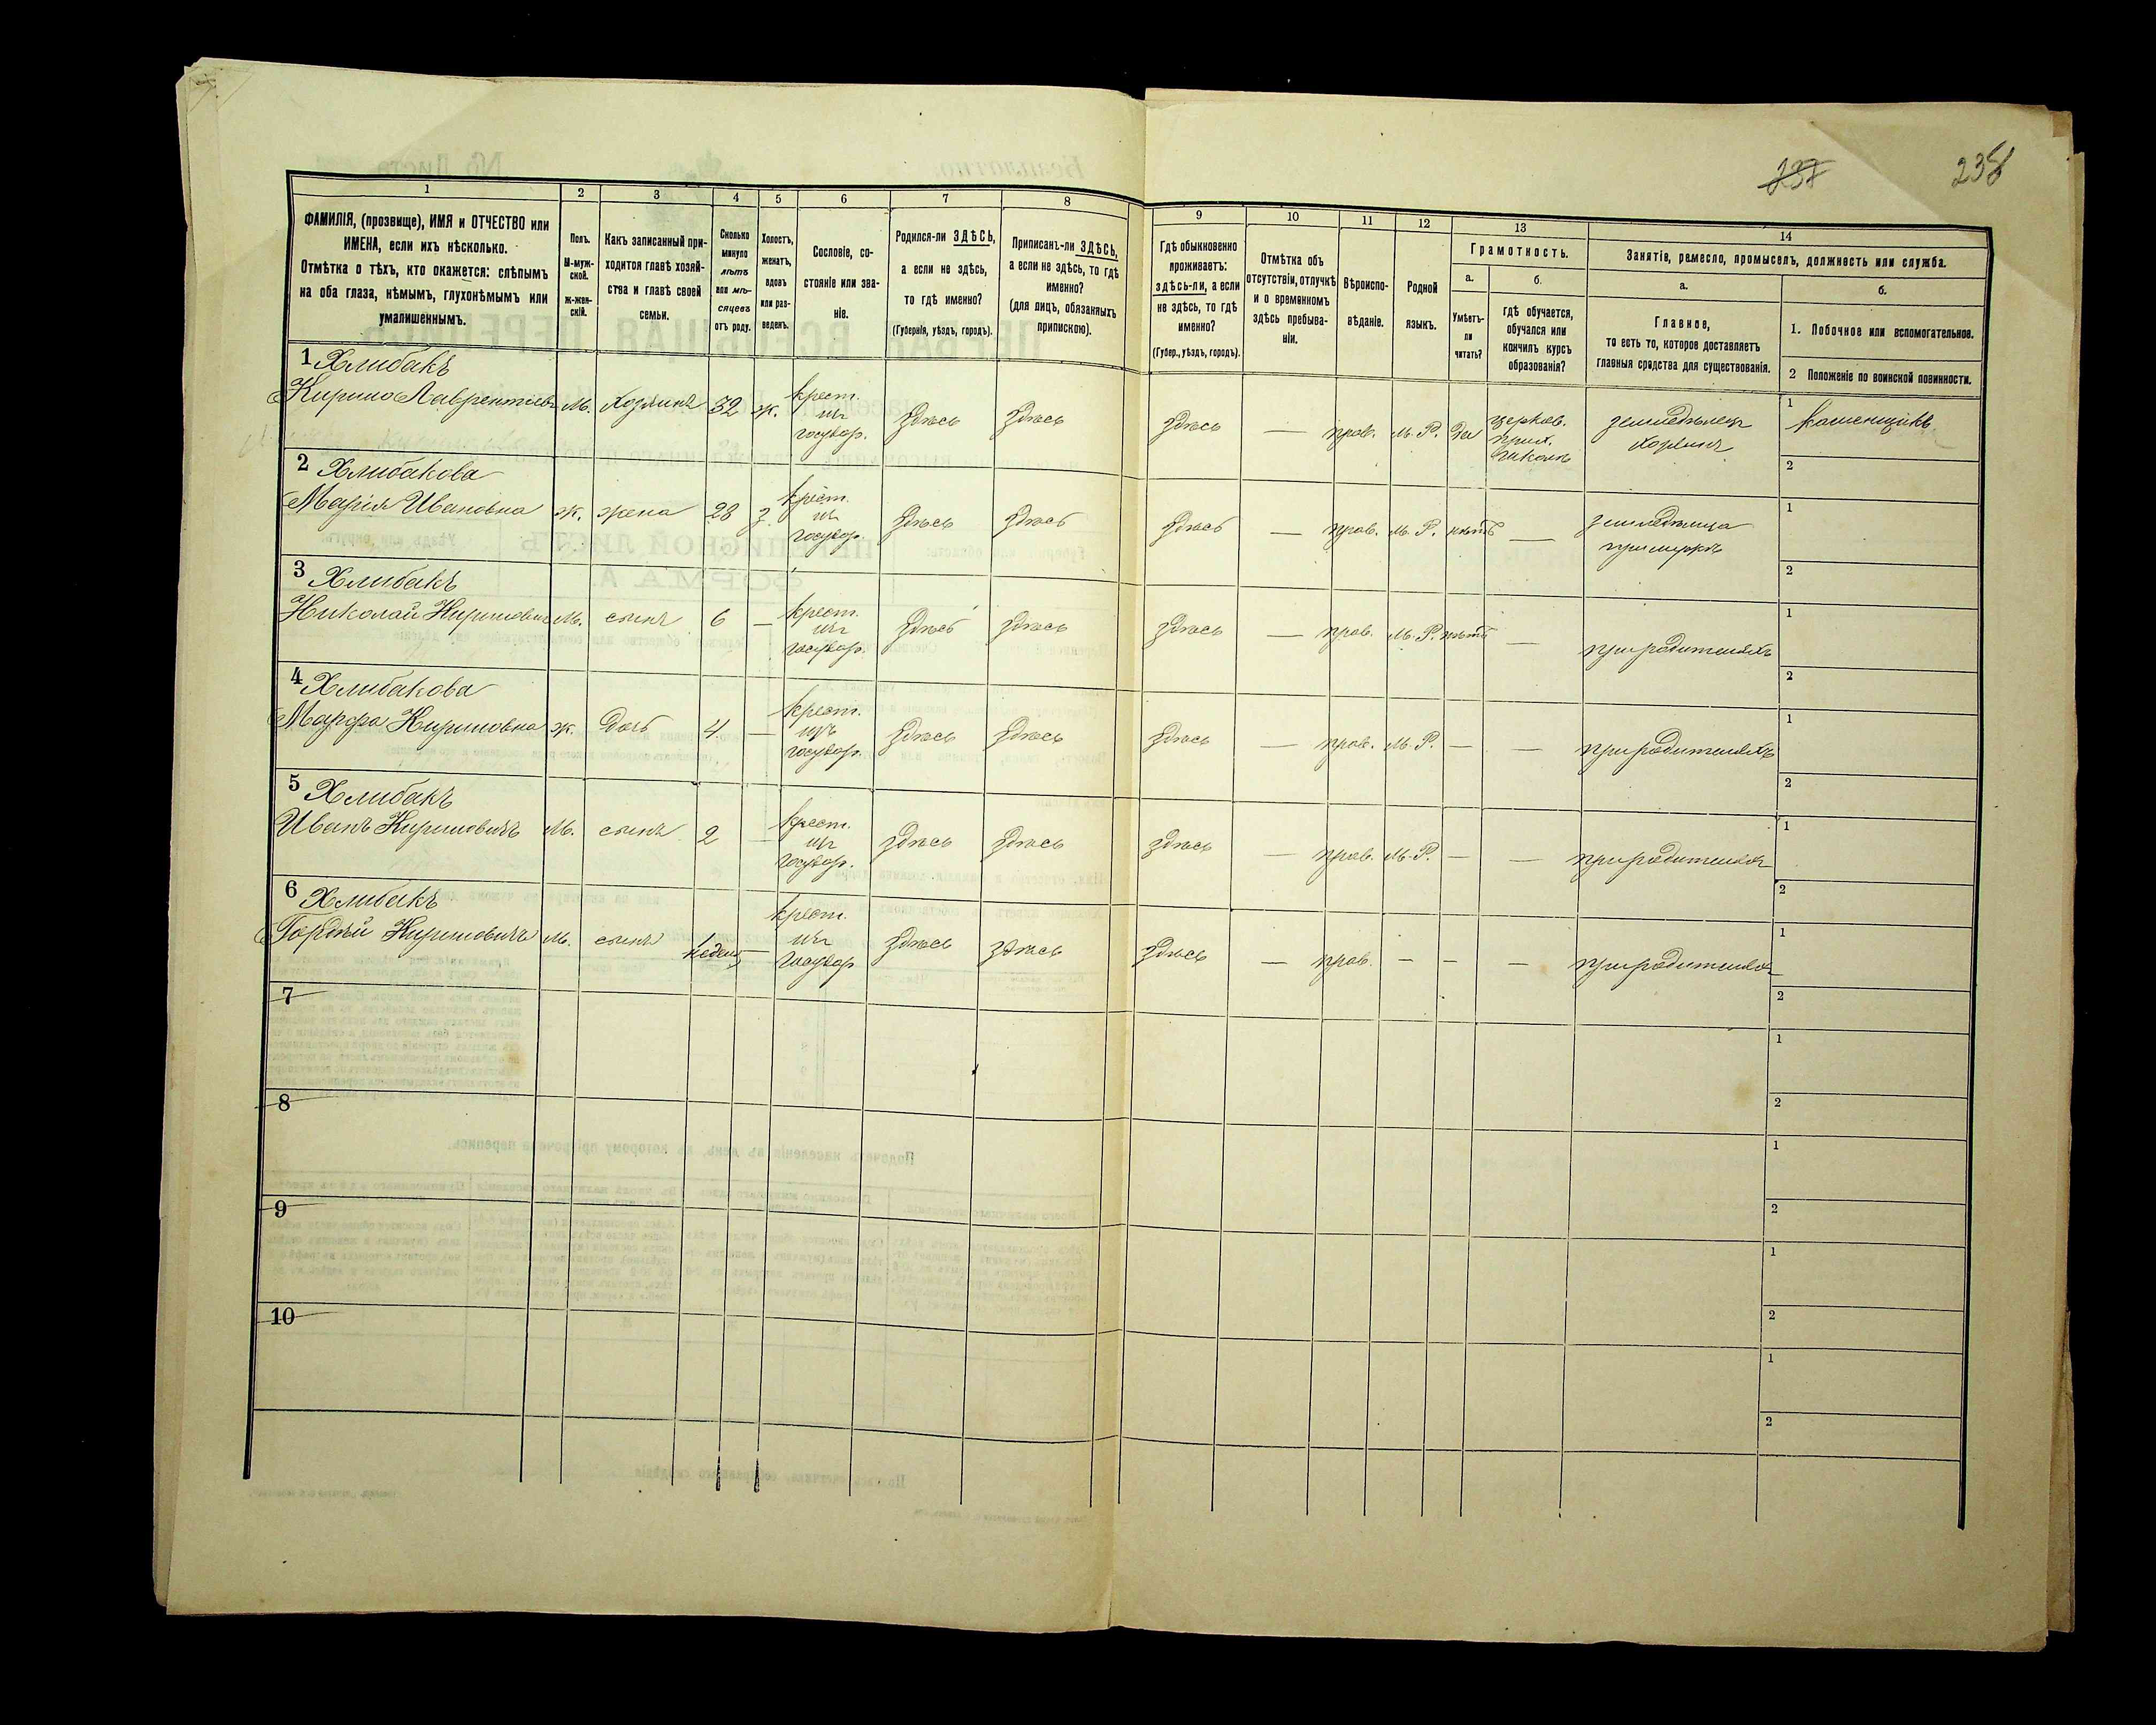 237 238
1 2 3 4 5 6 7 8 9 10 11 12 13 14
ФАМИЛІЯ, (прозвище), ИМЯ и ОТЧЕСТВО или
ИМЕНА, если ихъ нѣсколько.
Отмѣтка о тѣхъ, кто окажется: слѣпымъ
на оба глаза, нѣмымъ, глухонѣмымъ или
умалишеннымъ.
Полъ.
М-муж-
ской.
ж-жен-
скій.
Какъ записанный при-
ходится главѣ хозяй-
ства и главѣ своей
семьи.
Сколько
минуло
лѣтъ
или мѣ-
сяцевъ
отъ роду.
Холостъ,
женатъ,
вдовъ
или раз-
веденъ.
Сословіе, со-
стояніе или зва-
ніе.
Родился-ли ЗДѢСЬ,
а если не здѣсь,
то гдѣ именно?
(Губернія, уѣздъ, городъ).
Приписанъ-ли ЗДѢСЬ,
а если не здѣсь, то гдѣ
именно?
(для лицъ, обязанныхъ
припискою).
Гдѣ обыкновенно
проживаетъ:
здѣсь-ли, а если
не здѣсь, то гдѣ
именно?
(Губер., уѣздъ, городъ).
Отмѣтка объ
отсутствіи, отлучкѣ
и о временномъ
здѣсь пребыва-
ніи.
Вѣроиспо-
вѣданіе.
Родной
языкъ.
Грамотность.
а.
Умѣетъ-
ли
читать?
б.
гдѣ обучается,
обучался или
кончилъ курсъ
образованія?
Занятіе, ремесло, промыселъ, должность или служба.
а.
Главное,
то есть то, которое доставляетъ
главныя средства для существованія.
б.
1. Побочное или вспомогательное.
2 Положеніе по воинской повинности.
1 Хлибакъ
Кирило Лаврентіевъ М. Хозяинъ 32 ж. крест. изъ государ. Здѣсь Здѣсь Здѣсь — прав. М.Р. Да церков. прих. школѣ земледѣлецъ хозяинъ 1 каменщикъ
2
2 Хлибакова
Марія Ивановна ж. жена 28 з. крест. изъ государ. Здѣсь Здѣсь Здѣсь — прав. М.Р. нѣтъ — при мужѣ 1
2
3 Хлибакъ
Николай Кириловичъ М. сынъ 6 — крест. изъ государ. Здѣсь Здѣсь Здѣсь — прав. М.Р. нѣтъ — при родителяхъ 1
2
4 Хлибакова
Марфа Кириловна ж. дочь 4 — крест. изъ государ. Здѣсь Здѣсь Здѣсь — прав. М.Р. — — при родителяхъ 1
2
5 Хлибакъ
Иванъ Кириловичъ М. сынъ 2 — крест. изъ государ. Здѣсь Здѣсь Здѣсь — прав. М.Р. — — при родителяхъ 1
2
6 Хлибакъ
Гордѣй Кириловичъ М. сынъ — крест. изъ государ Здѣсь Здѣсь Здѣсь — прав. — — — при родителяхъ 1
2
7 1
2
8 1
2
9 1
2
10 1
2